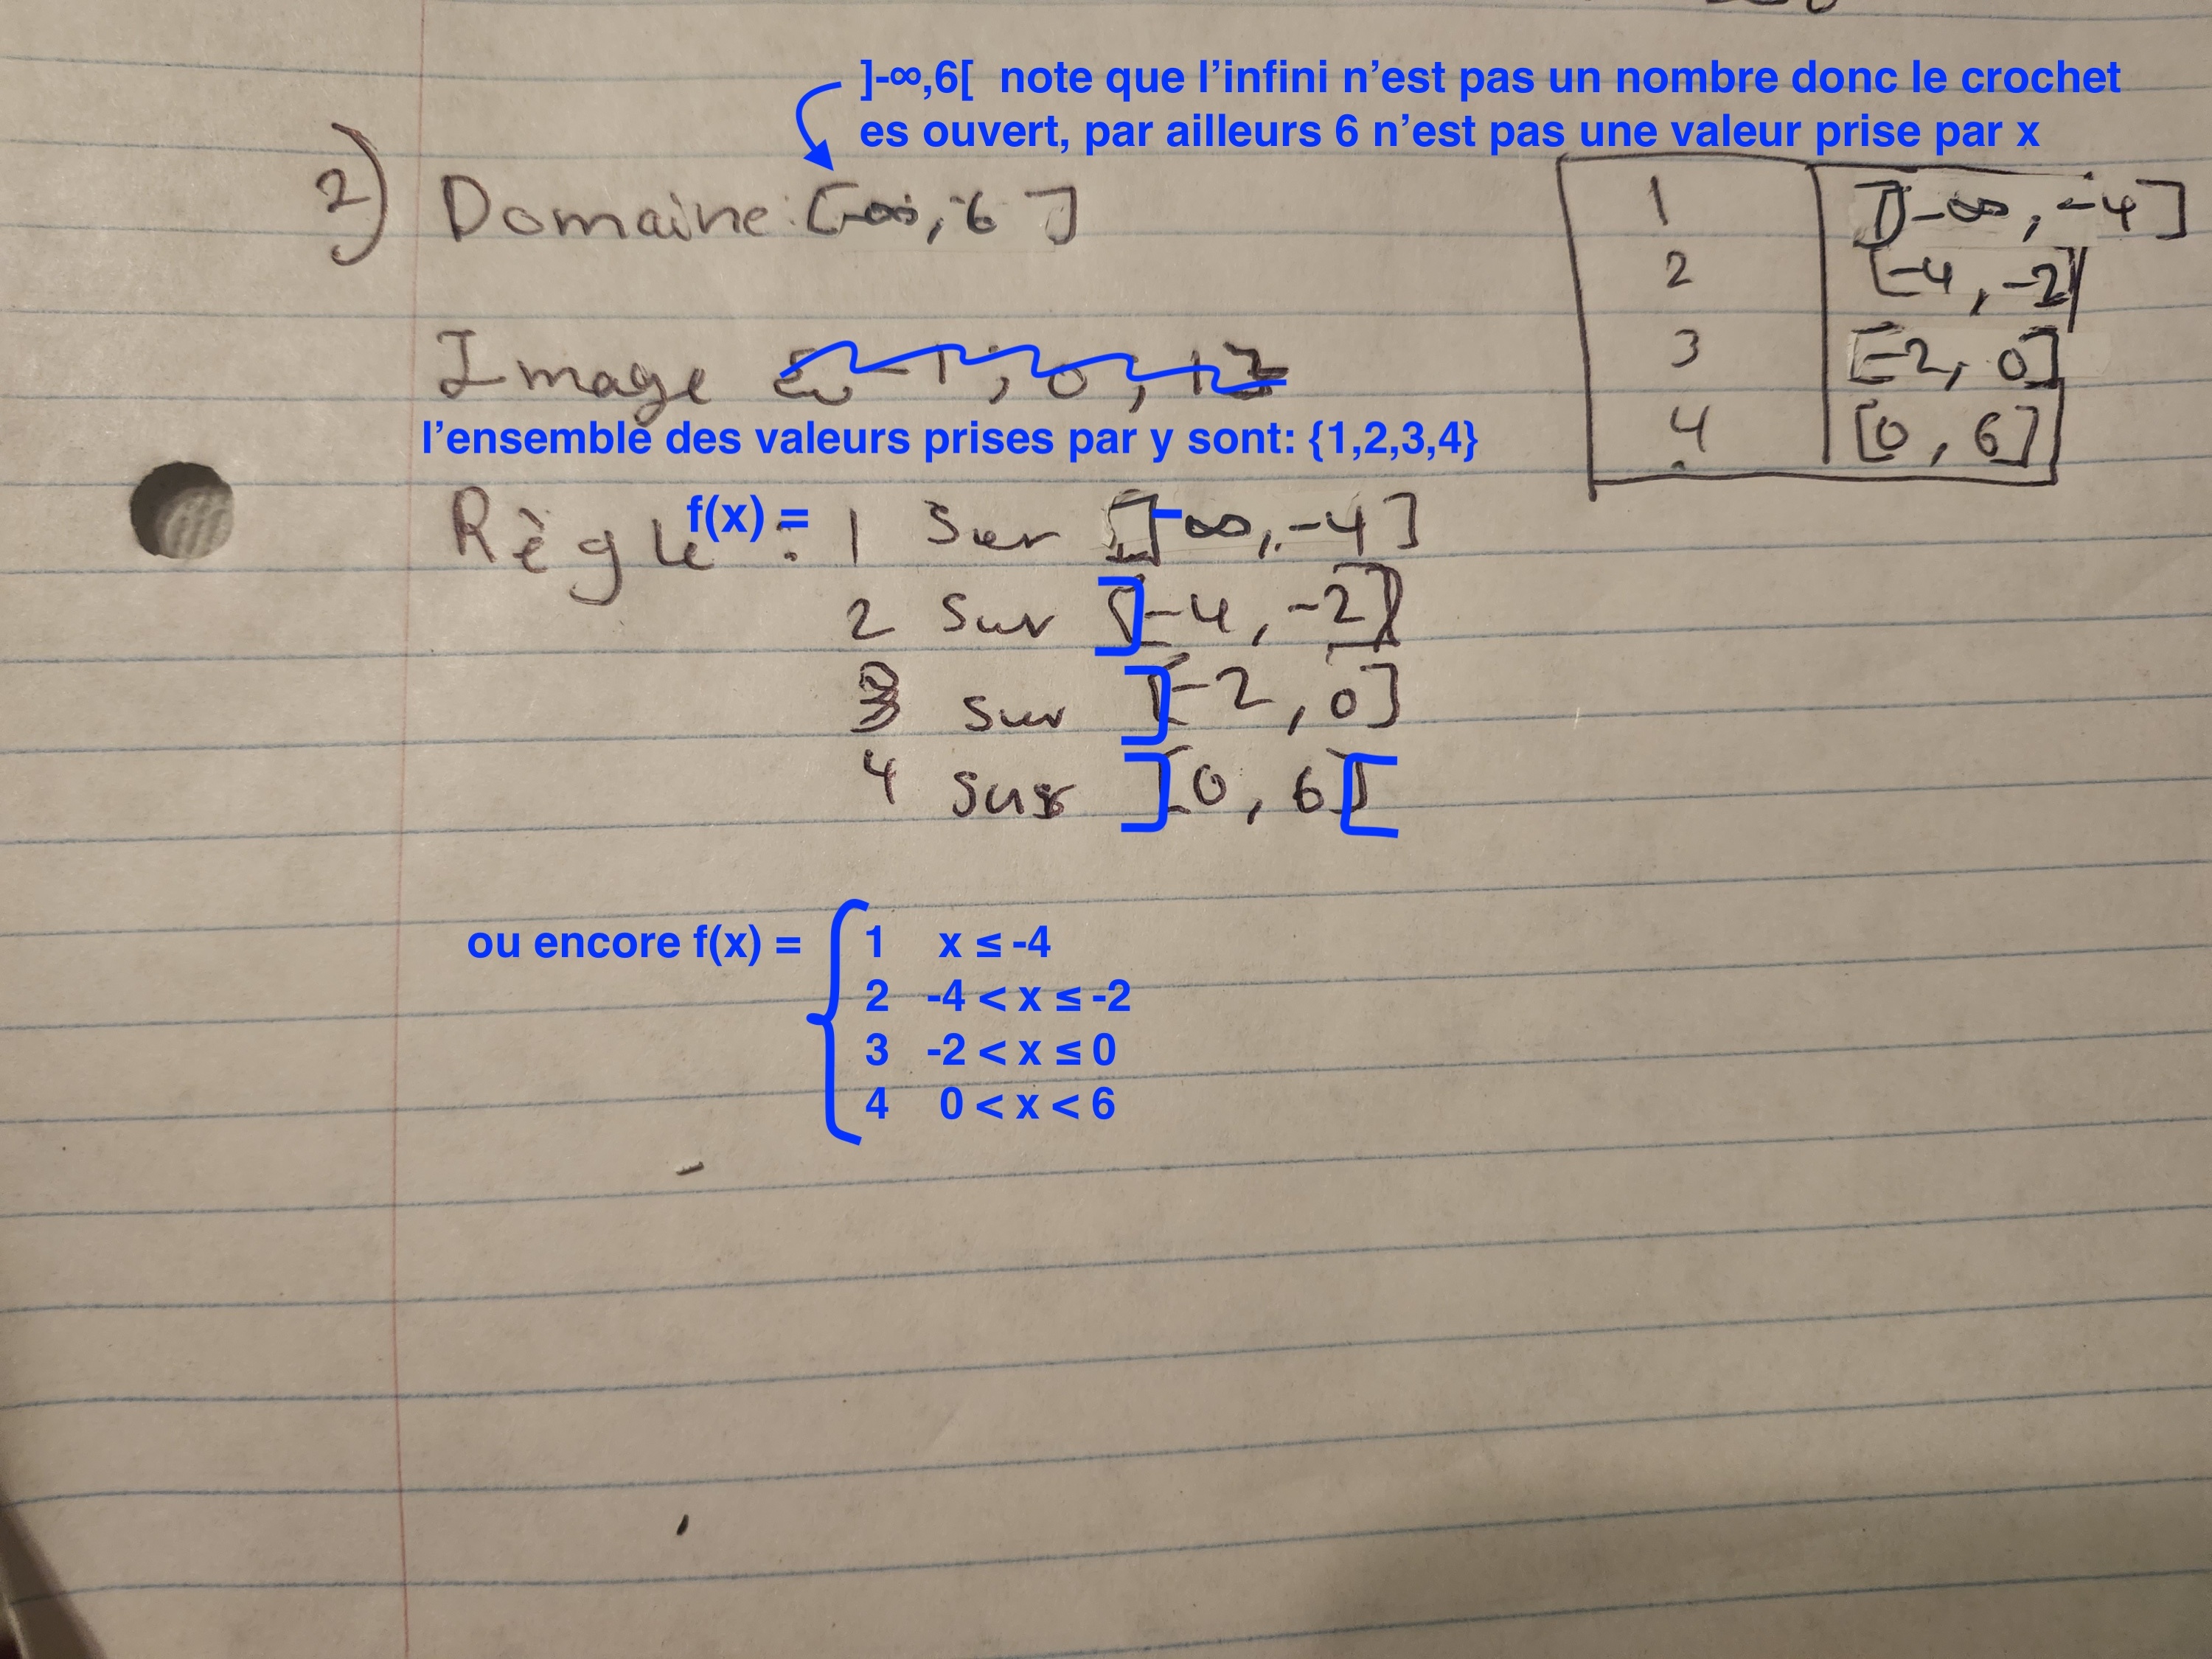 ]-∞,6[ note que l’infini n’est pas un nombre donc le crochet
es ouvert, par ailleurs 6 n’est pas une valeur prise par x
2) Domaine: [-∞, 6 ]
1 ]-∞, -4]
2 [-4, -2]
3 [-2, 0]
4 [0, 6]
Image {-1; 0; 1}
l’ensemble des valeurs prises par y sont: {1,2,3,4}
Règle : f(x) = 1 sur ]-∞, -4]
2 sur ]-4, -2]
3 sur ]-2, 0]
4 sur ]0, 6[
ou encore f(x) = { 1 x ≤ -4
2 -4 < x ≤ -2
3 -2 < x ≤ 0
4 0 < x < 6